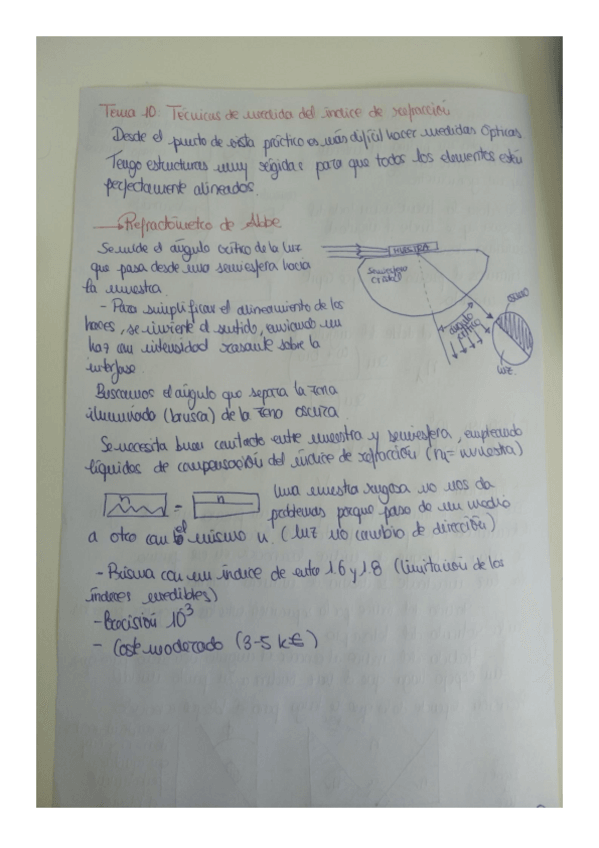 Tema 10: Técnicas de medida del índice de refracción
Desde el punto de vista práctico es más difícil hacer medidas ópticas.
Tengo estructuras muy rígidas para que todos los elementos estén
perfectamente alineados.
→ Refractómetro de Abbe
Se mide el ángulo crítico de la luz
que pasa desde una semiesfera hacia
la muestra
- Para simplificar el alineamiento de los
haces, se invierte el sentido, enviando un
haz con intensidad rasante sobre la
interfase.
Buscamos el ángulo que separa la zona
iluminada (brusca) de la zona oscura.
muestra
semiesfera
ángulo
crítico
oscuro
luz
Se necesita buen contacto entre muestra y semiesfera, empleando
líquidos de compensación del índice de refracción (n= muestra)
n = n
Una muestra rugosa no nos da
problemas porque paso de un medio
a otro con el mismo n. (luz no cambio de dirección)
- Prisma con un índice de entre 1.6 y 1.8 (limitación de los
índices medibles)
- Precisión 10³
- Coste moderado (3-5 k€)